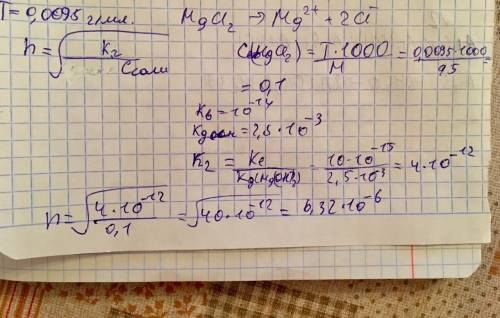 T=0,0095 г/мл. MgCl₂ → Mg²⁺ + 2Cl⁻
h = √(K₂ / Cсоли) C(MgCl₂) = T·1000 / M = 0,0095·1000 / 95
= 0,1
Kв = 10⁻¹⁴
Kдосн = 2,5·10⁻³
K₂ = Kв / Kд(Mg(OH)₂) = 10·10⁻¹⁵ / 2,5·10³ = 4·10⁻¹²
h = √(4·10⁻¹² / 0,1) = √40·10⁻¹² = 6,32·10⁻⁶